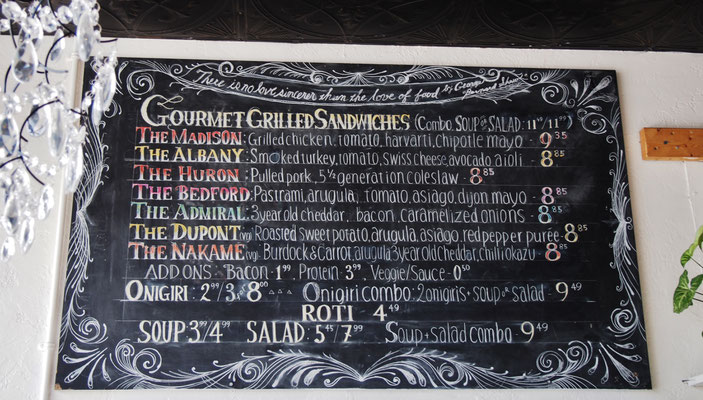 There is no love sincerer than the love of food by George Bernard Shaw
GOURMET GRILLED SANDWICHES (Combo SOUP OR SALAD: 11
THE MADISON: Grilled chicken, tomato, harvarti, chipotle mayo - 9.35
THE ALBANY: Smoked turkey, tomato, swiss cheese, avocado aioli - 8.85
THE HURON: Pulled pork, 5½ generation coleslaw - 8.85
THE BEDFORD: Pastrami, arugula, tomato, asiago, dijon mayo - 8.85
THE ADMIRAL: 3 year old cheddar, bacon, caramelized onions - 8.85
THE DUPONT (vg) Roasted sweet potato, arugula, asiago, red pepper purée - 8.85
THE NAKAME (vg) Burdock & Carrot, arugula 3 year old cheddar, chilli okazu - 8.85
ADD ONS: Bacon - 1.99, Protein - 3.99, Veggie/Sauce - 0.50
ONIGIRI: 2.99/3 for 8.00 Onigiri combo: 2 onigiris + soup or salad - 9.49
ROTI 4.49
SOUP 3.99/4.99 SALAD: 5.45/7.99 Soup + salad combo 9.49